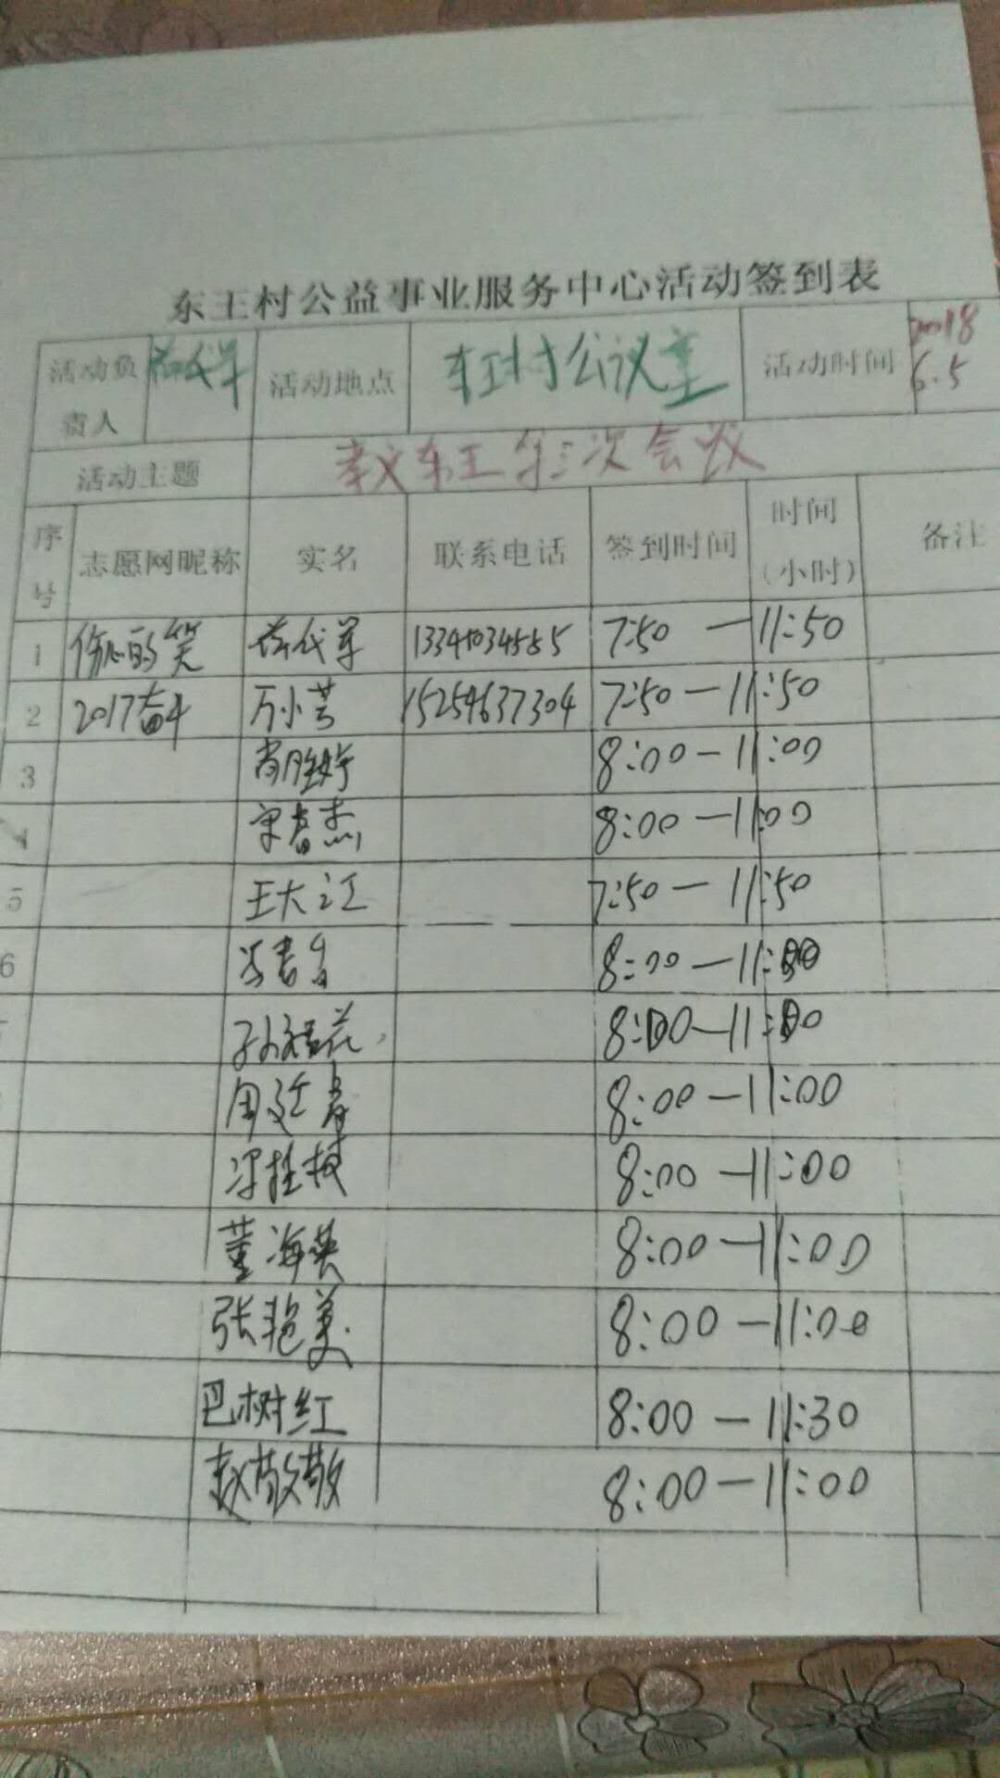 东王村公益事业服务中心活动签到表
活动负责人 活动地点 东王村会议室 活动时间 2018 6.5
活动主题 孝文东王第三次会议
序号 志愿网昵称 实名 联系电话 签到时间 时间（小时） 备注
1 伤心的笑 7:50 — 11:50
2 2017奋斗 万小芳 15254637304 7:50 — 11:50
3 8:00 — 11:00
4 宋春杰 8:00 — 11:00
5 王大江 7:50 — 11:50
6 8:00 — 11:00
8:00 — 11:00
周廷春 8:00 — 11:00
8:00 — 11:00
董海英 8:00 — 11:00
张艳美 8:00 — 11:00
巴树红 8:00 — 11:30
赵敬敬 8:00 — 11:00